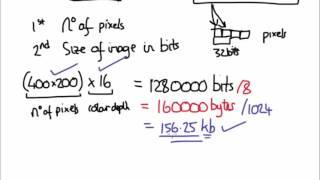 1st N° of pixels
2nd Size of image in bits
pixels
32bits
(400×200) × 16 = 1280000 bits /8
n° of pixels color depth = 160000 bytes /1024
= 156.25 kb ✓